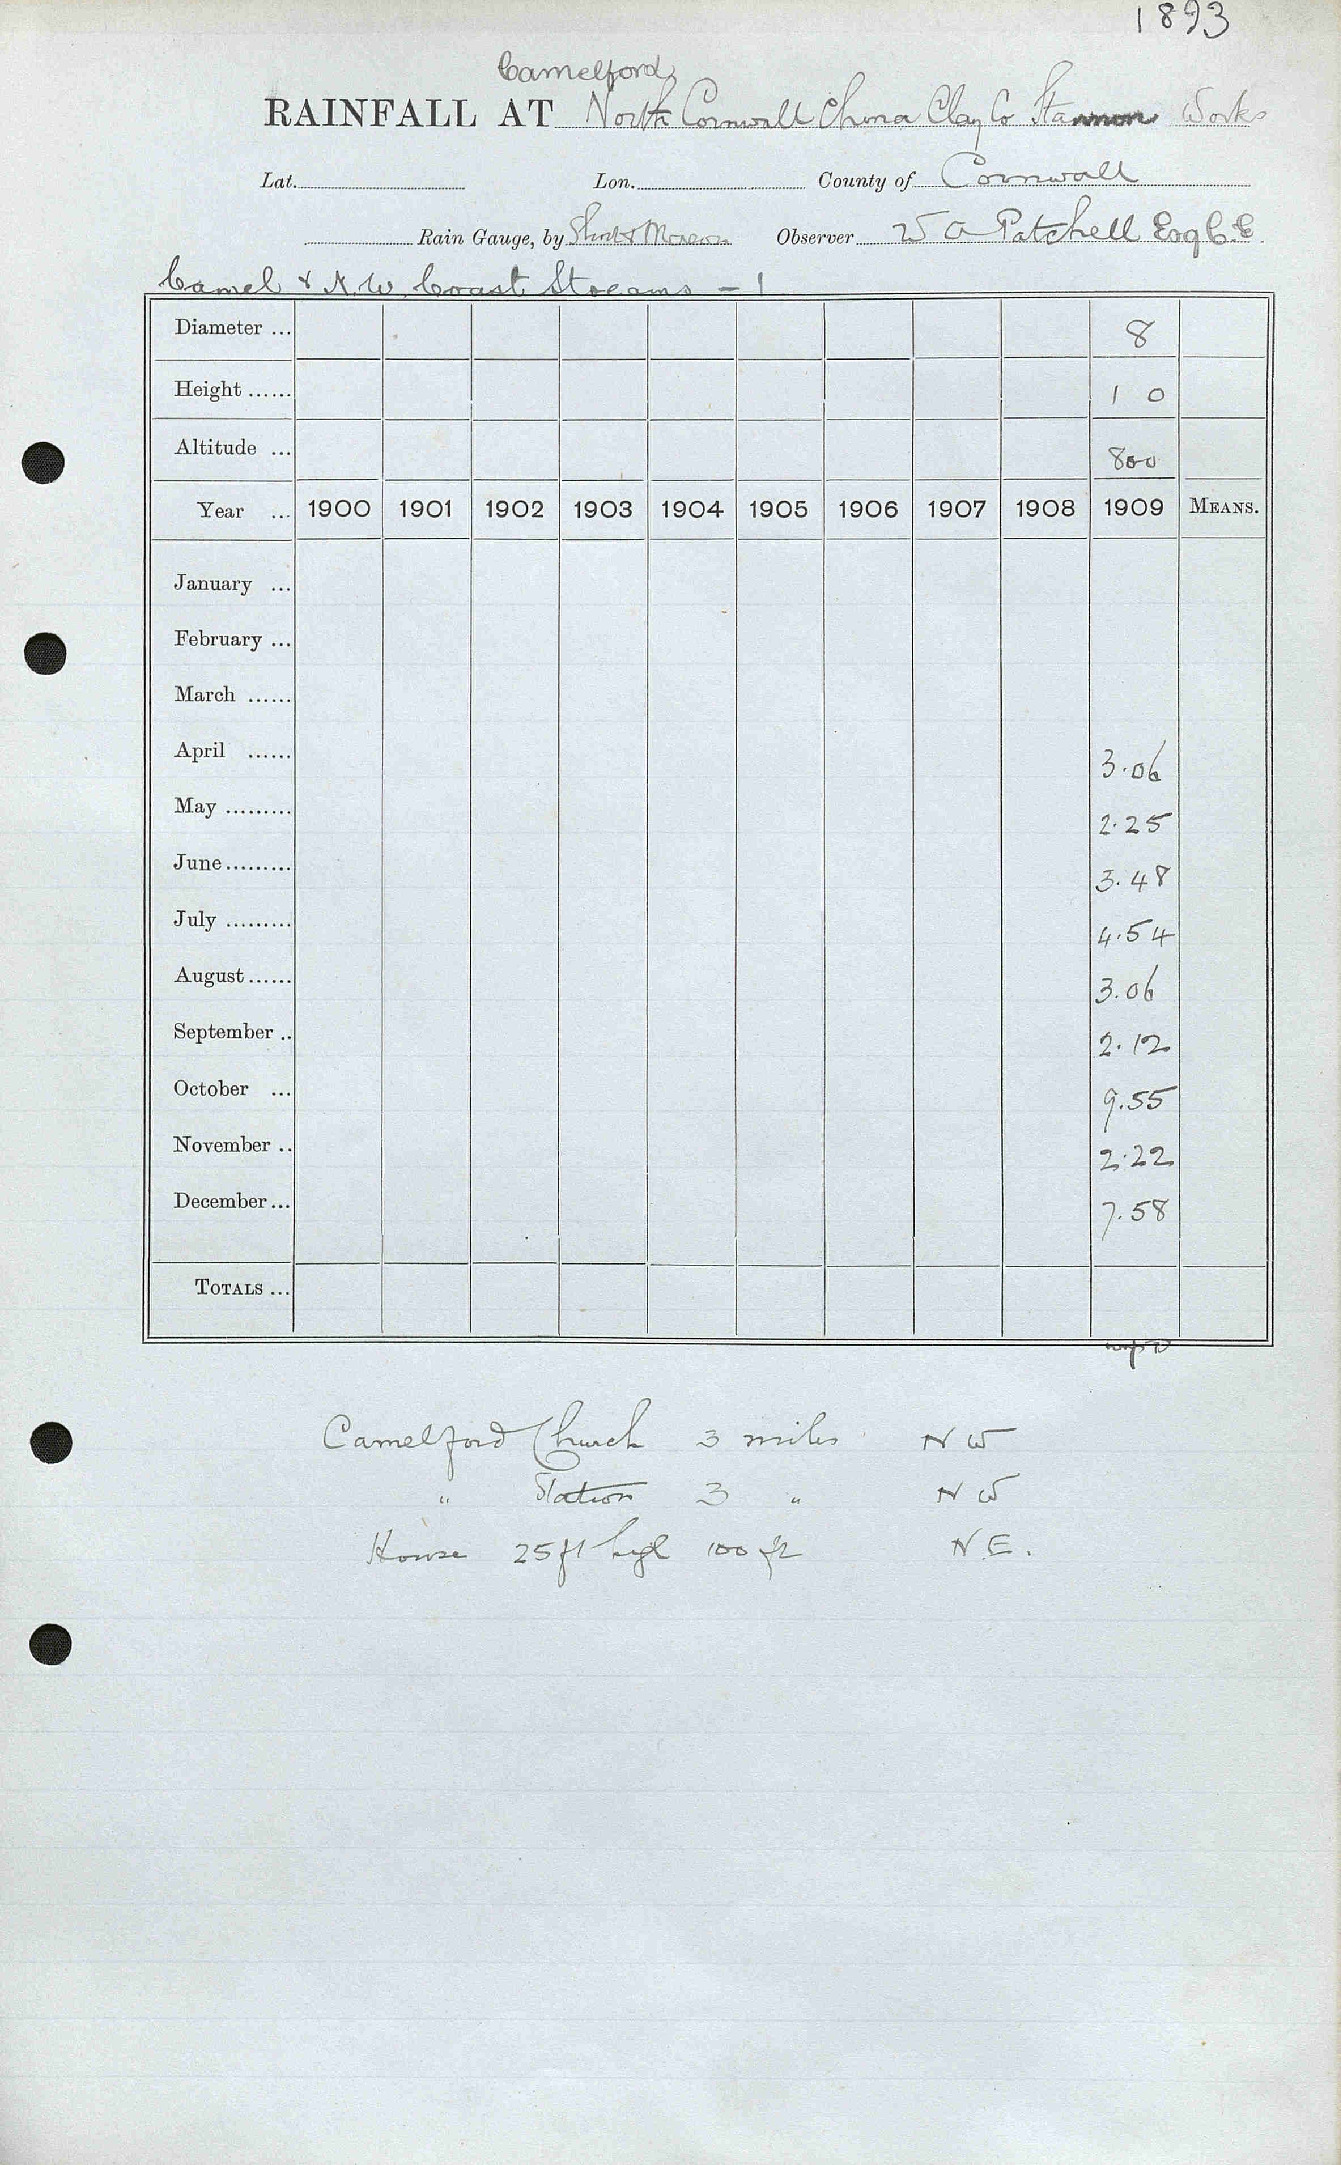 1893
Camelford,
RAINFALL AT North Cornwall China Clay Co Stannon Works
Lat. Lon. County of Cornwall
Rain Gauge, by Observer W A Patchell Esq C.E.
Camel & N.W. Coast Streams - 1
Diameter ... 8
Height ...... 1 0
Altitude ... 800
Year ... 1900 1901 1902 1903 1904 1905 1906 1907 1908 1909 MEANS.
January ...
February ...
March ......
April ...... 3.06
May ......... 2.25
June ......... 3.48
July ......... 4.54
August ...... 3.06
September .. 2.12
October ... 9.55
November .. 2.22
December ... 7.58
TOTALS ...
Camelford Church 3 miles NW
" Station 3 " NW
House 25 ft high 100 ft N.E.